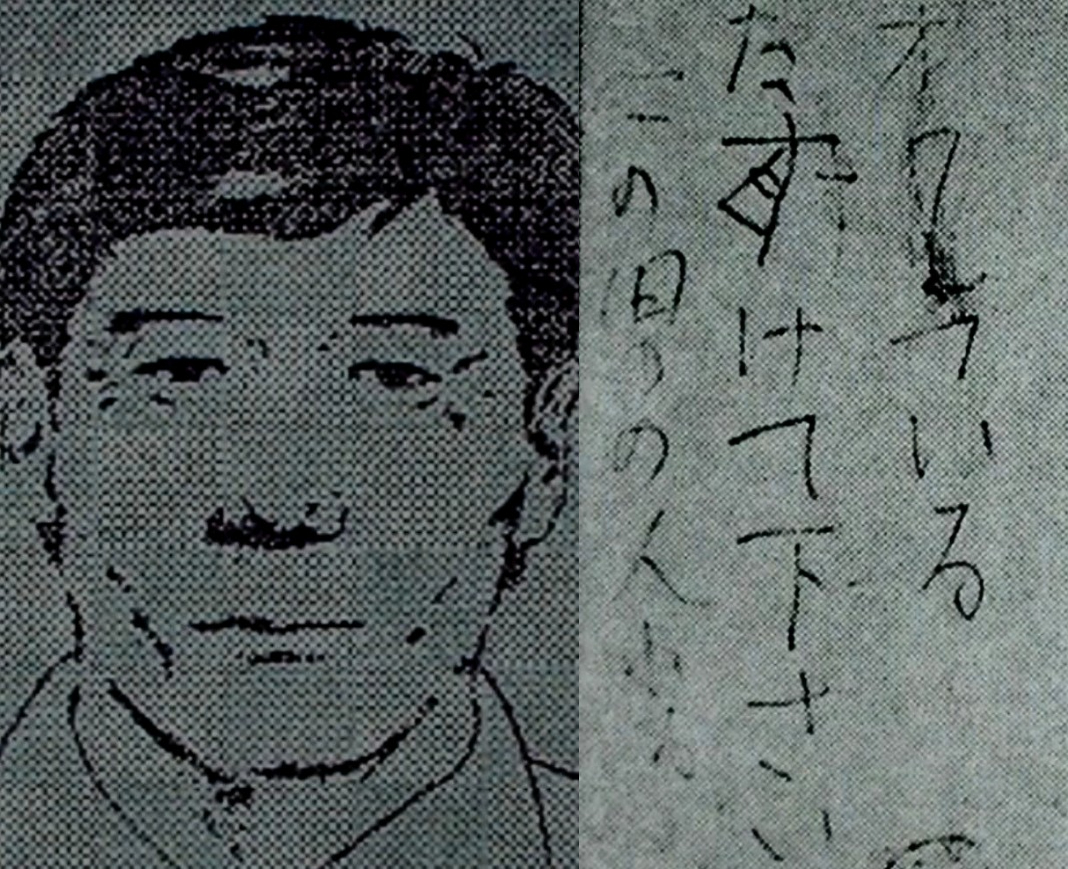 オワている
たすけて下さい
この男の人